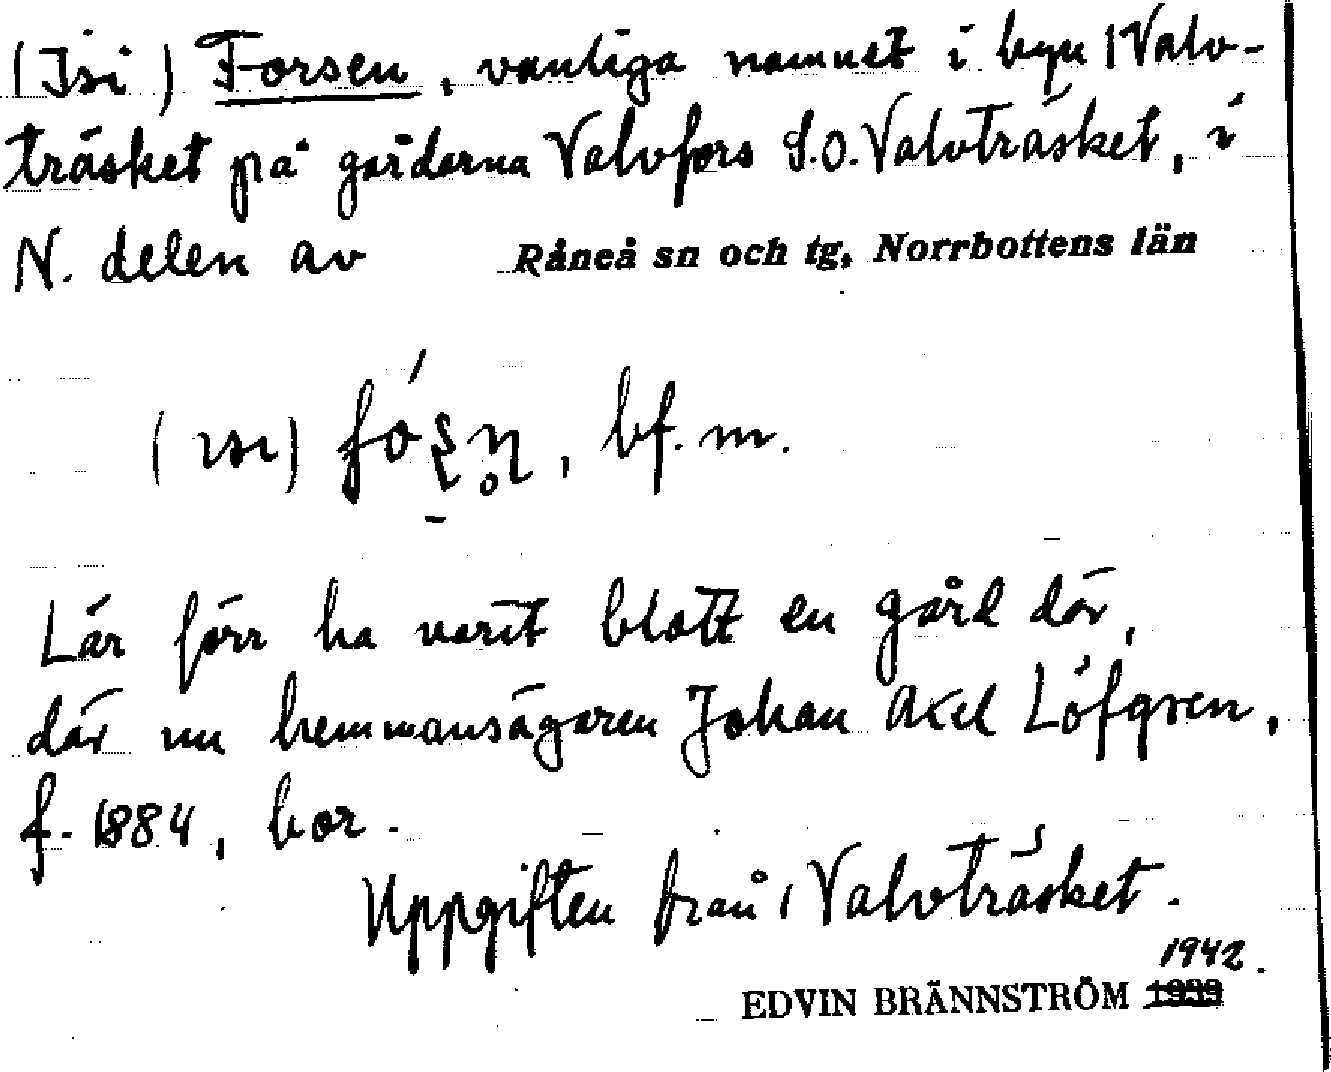 (Isi) Forsen, vanliga namnet i byn Valv-
träsket på gårdarna Valvfors S.O. Valvträsket, i
N. delen av Råneå sn och tg, Norrbottens län
(ısı) fóʂn̥, bf. m.
Lär förr ha varit blott en gård där,
där nu hemmansägaren Johan Axel Löfgren,
f. 1884, bor.
Uppgiften från Valvträsket.
1942.
EDVIN BRÄNNSTRÖM 1939